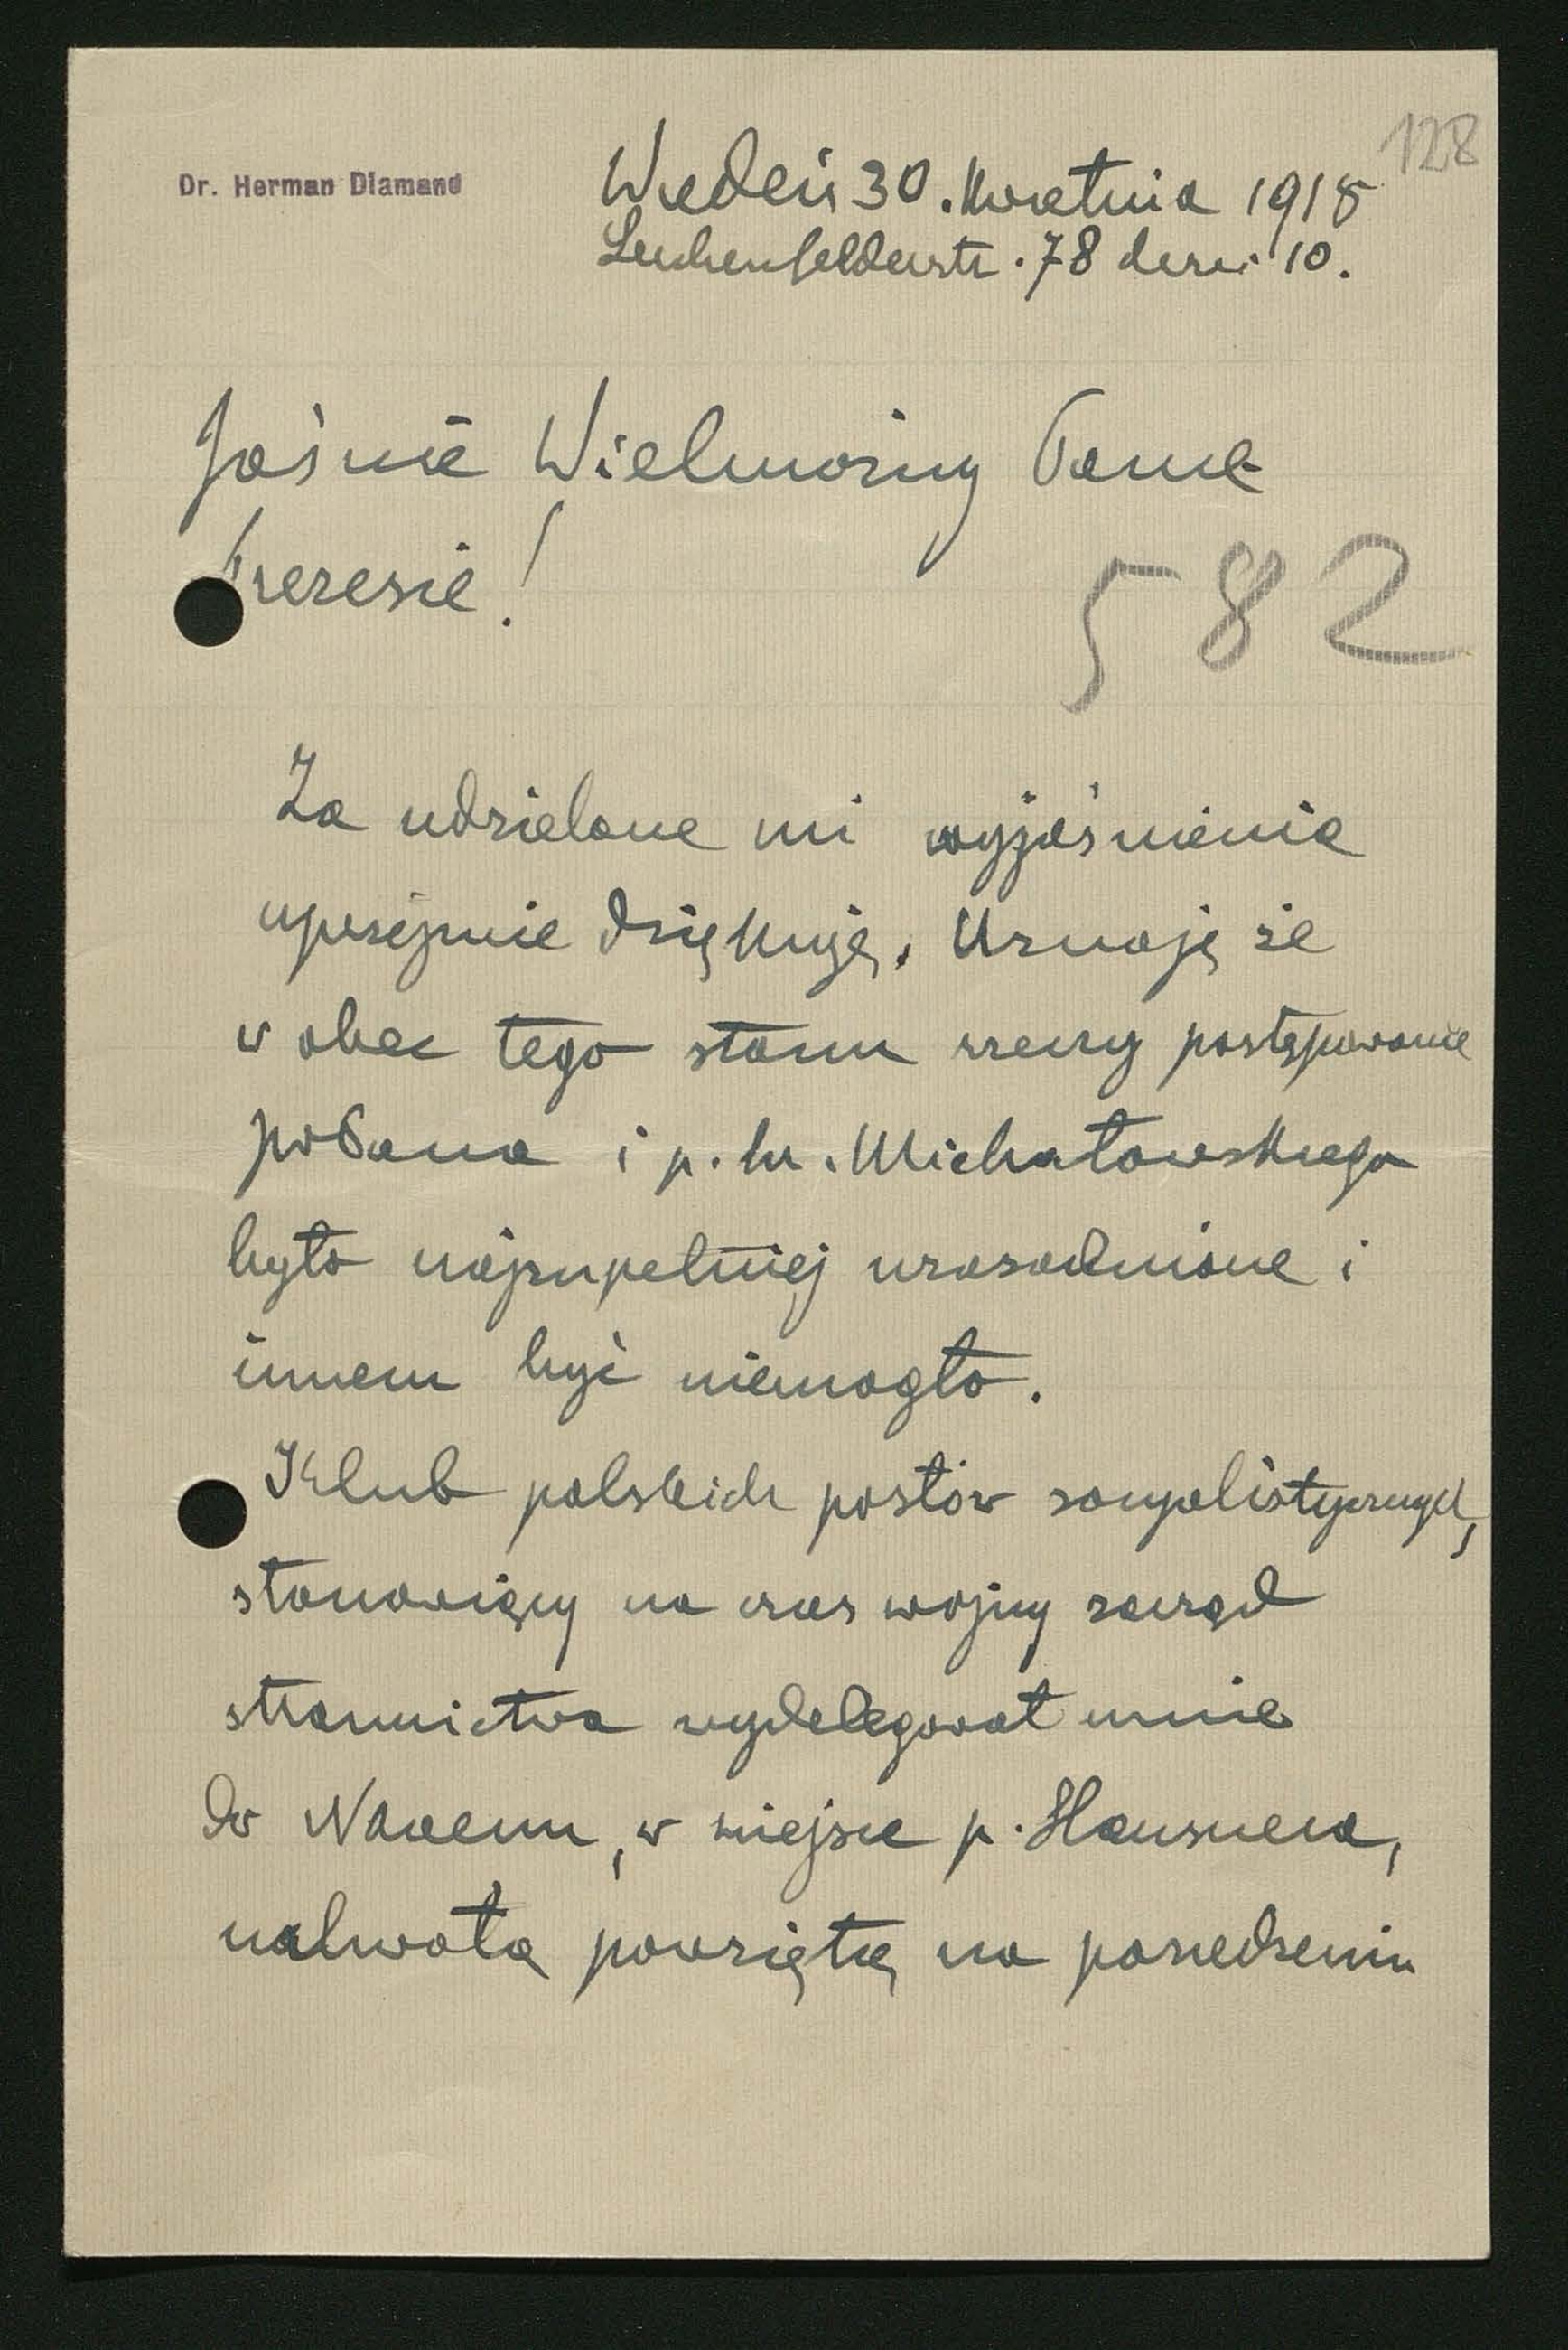 128
Dr. Herman Diamand
Wiedeń 30. kwietnia 1915
Lerchenfelderstr. 78 drzwi 10.
Jaśnie Wielmożny Panie
Prezesie!
582
Za udzielone mi wyjaśnienia
uprzejmie dziękuję. Uznaję że
w obec tego stanu rzeczy postępowanie
prPana i p. hr. Michałowskiego
było najzupełniej uzasadnione i
innem być niemogło.
Klub polskich posłów socyalistycznych,
stanowiący na czas wojny zarząd
stronnictwa wydelegował mnie
do Nkaenu, w miejsce p. Hausnera,
uchwałą powziętą na posiedzeniu